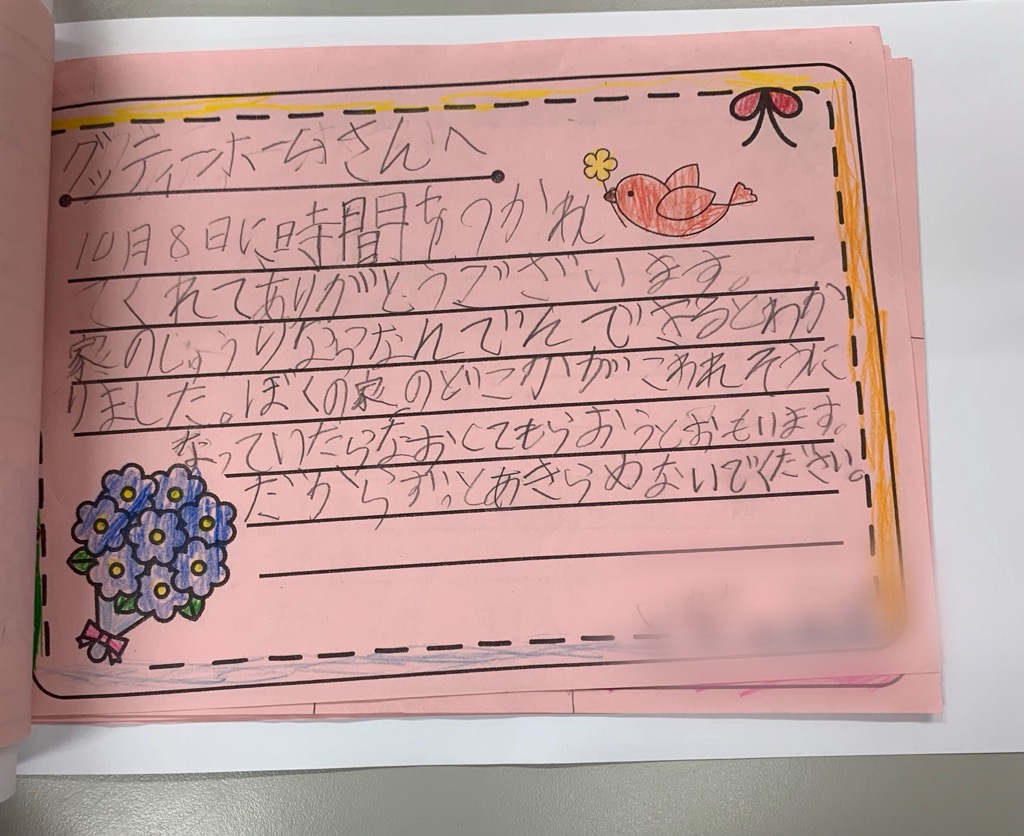 グッティーホームさんへ
10月8日に時間をつかれ
てくれてありがとうございます。
家のしゅうりならなんでんできるとわか
りました。ぼくの家のどこかがこわれそうに
なっていたらなおしてもらおうとおもいます。
だからずっとあきらめないでください。